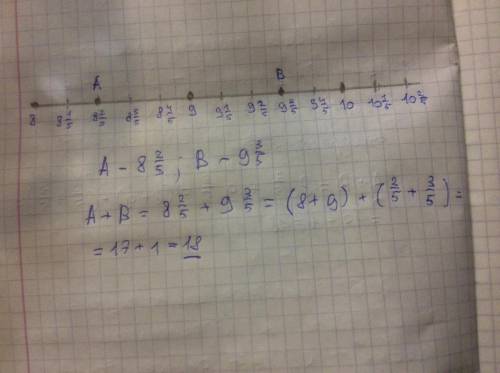 A B
8 8 1/5 8 2/5 8 3/5 8 4/5 9 9 1/5 9 2/5 9 3/5 9 4/5 10 10 1/5 10 2/5
A - 8 2/5 ; B - 9 3/5
A + B = 8 2/5 + 9 3/5 = (8 + 9) + (2/5 + 3/5) =
= 17 + 1 = 18